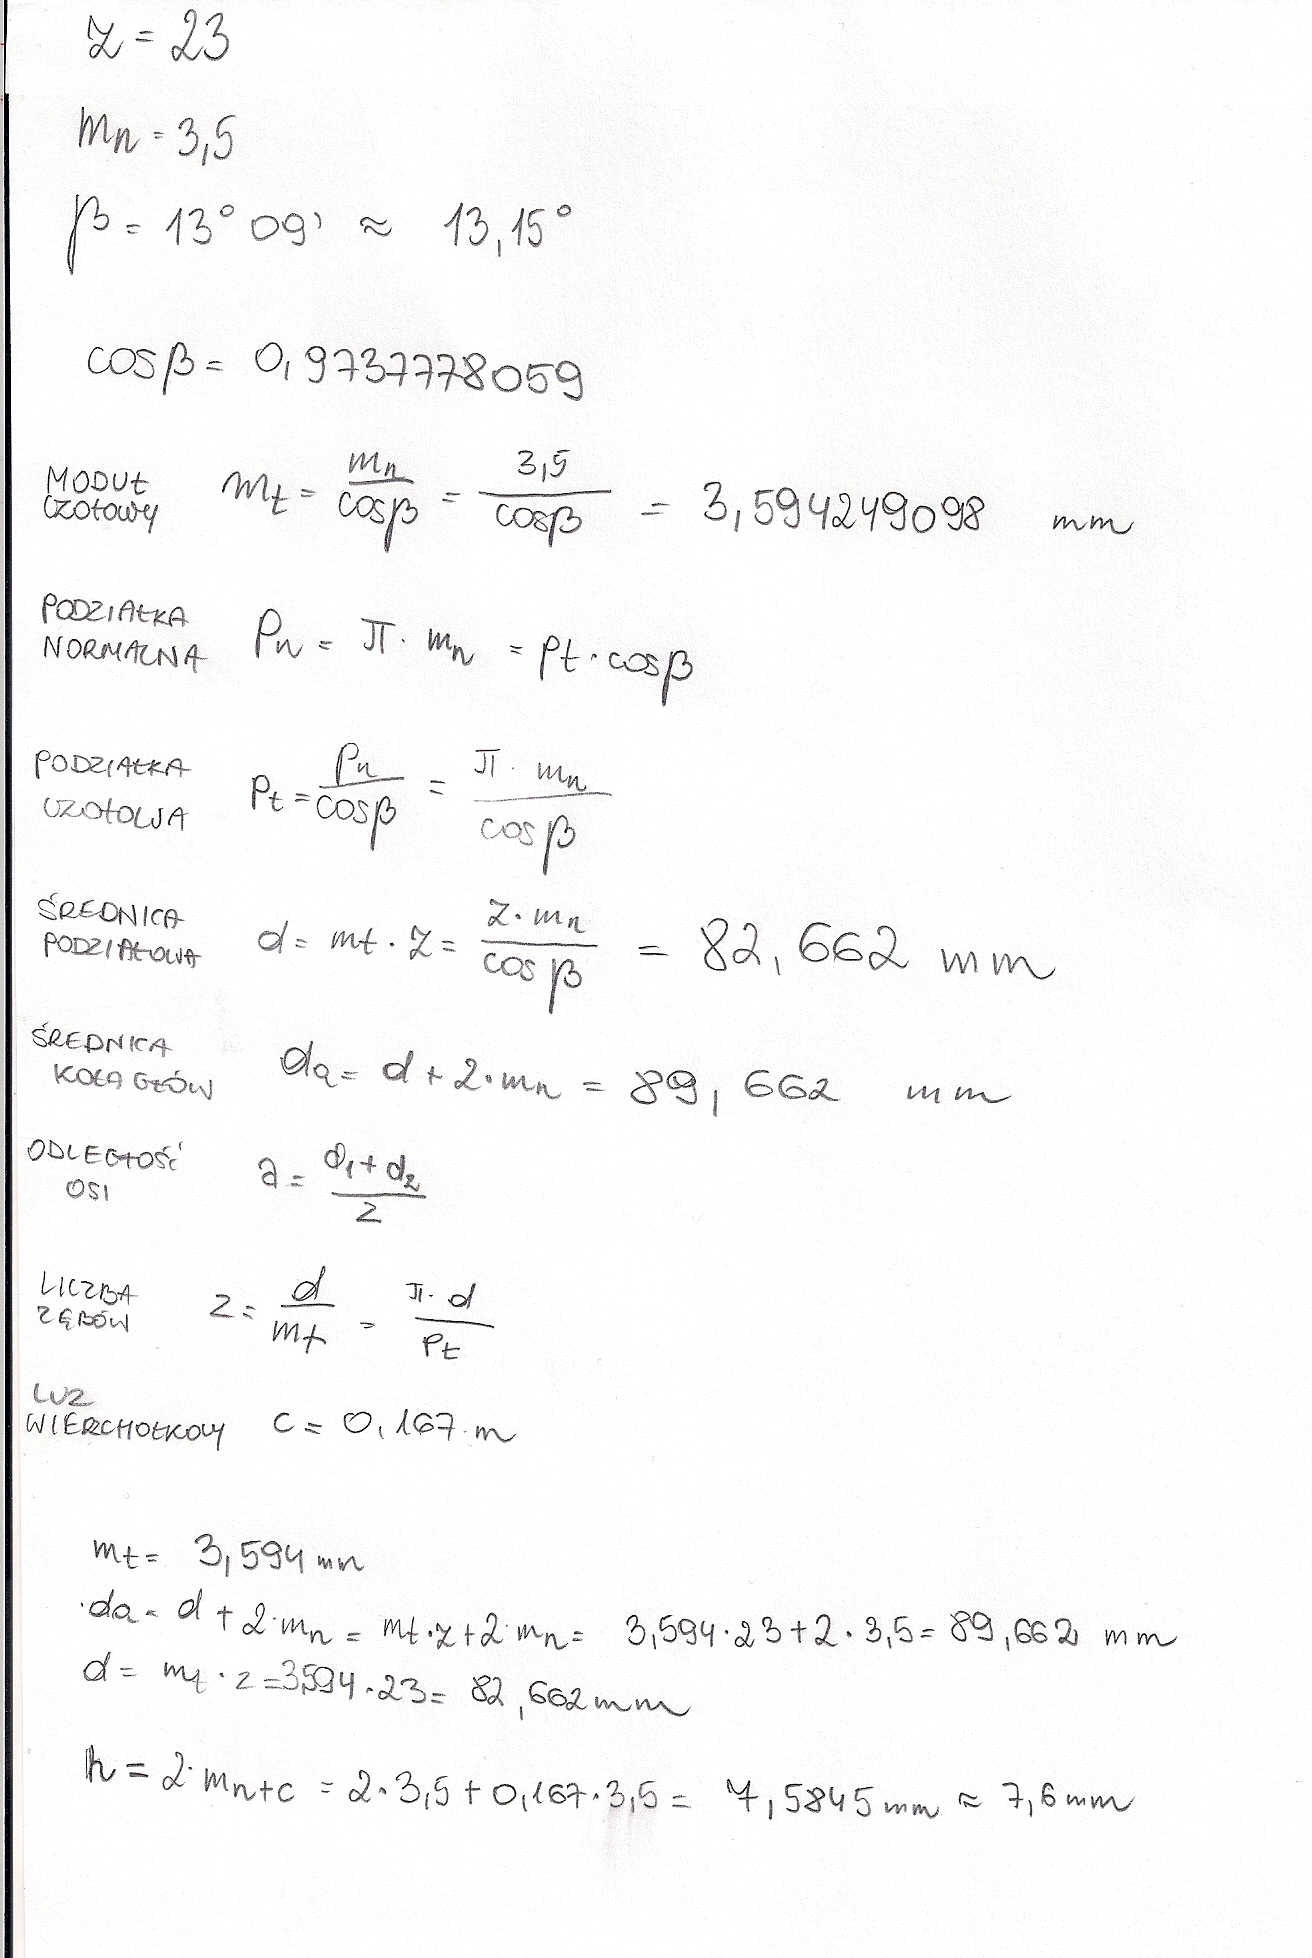 z = 23
mn = 3,5
β = 13° 09' ≈ 13,15°
cosβ = 0,9737778059
MODUŁ CZOŁOWY mt = mn/cosβ = 3,5/cosβ = 3,594249098 mm
PODZIAŁKA NORMALNA Pn = π · mn = pt · cosβ
PODZIAŁKA CZOŁOWA Pt = Pn/cosβ = π · mn/cosβ
ŚREDNICA PODZIAŁOWA d = mt · z = z · mn/cosβ = 82,662 mm
ŚREDNICA KOŁA GŁÓW da = d + 2 · mn = 89,662 mm
ODLEGŁOŚĆ OSI a = d1 + d2/2
LICZBA ZĘBÓW z = d/mt = π · d/Pt
LUZ WIERZCHOŁKOWY c = 0,167 · m
mt = 3,594 mm
da = d + 2 · mn = mt · z + 2 · mn = 3,594 · 23 + 2 · 3,5 = 89,662 mm
d = mt · z = 3,594 · 23 = 82,662 mm
h = 2 · mn + c = 2 · 3,5 + 0,167 · 3,5 = 7,5845 mm ≈ 7,6 mm